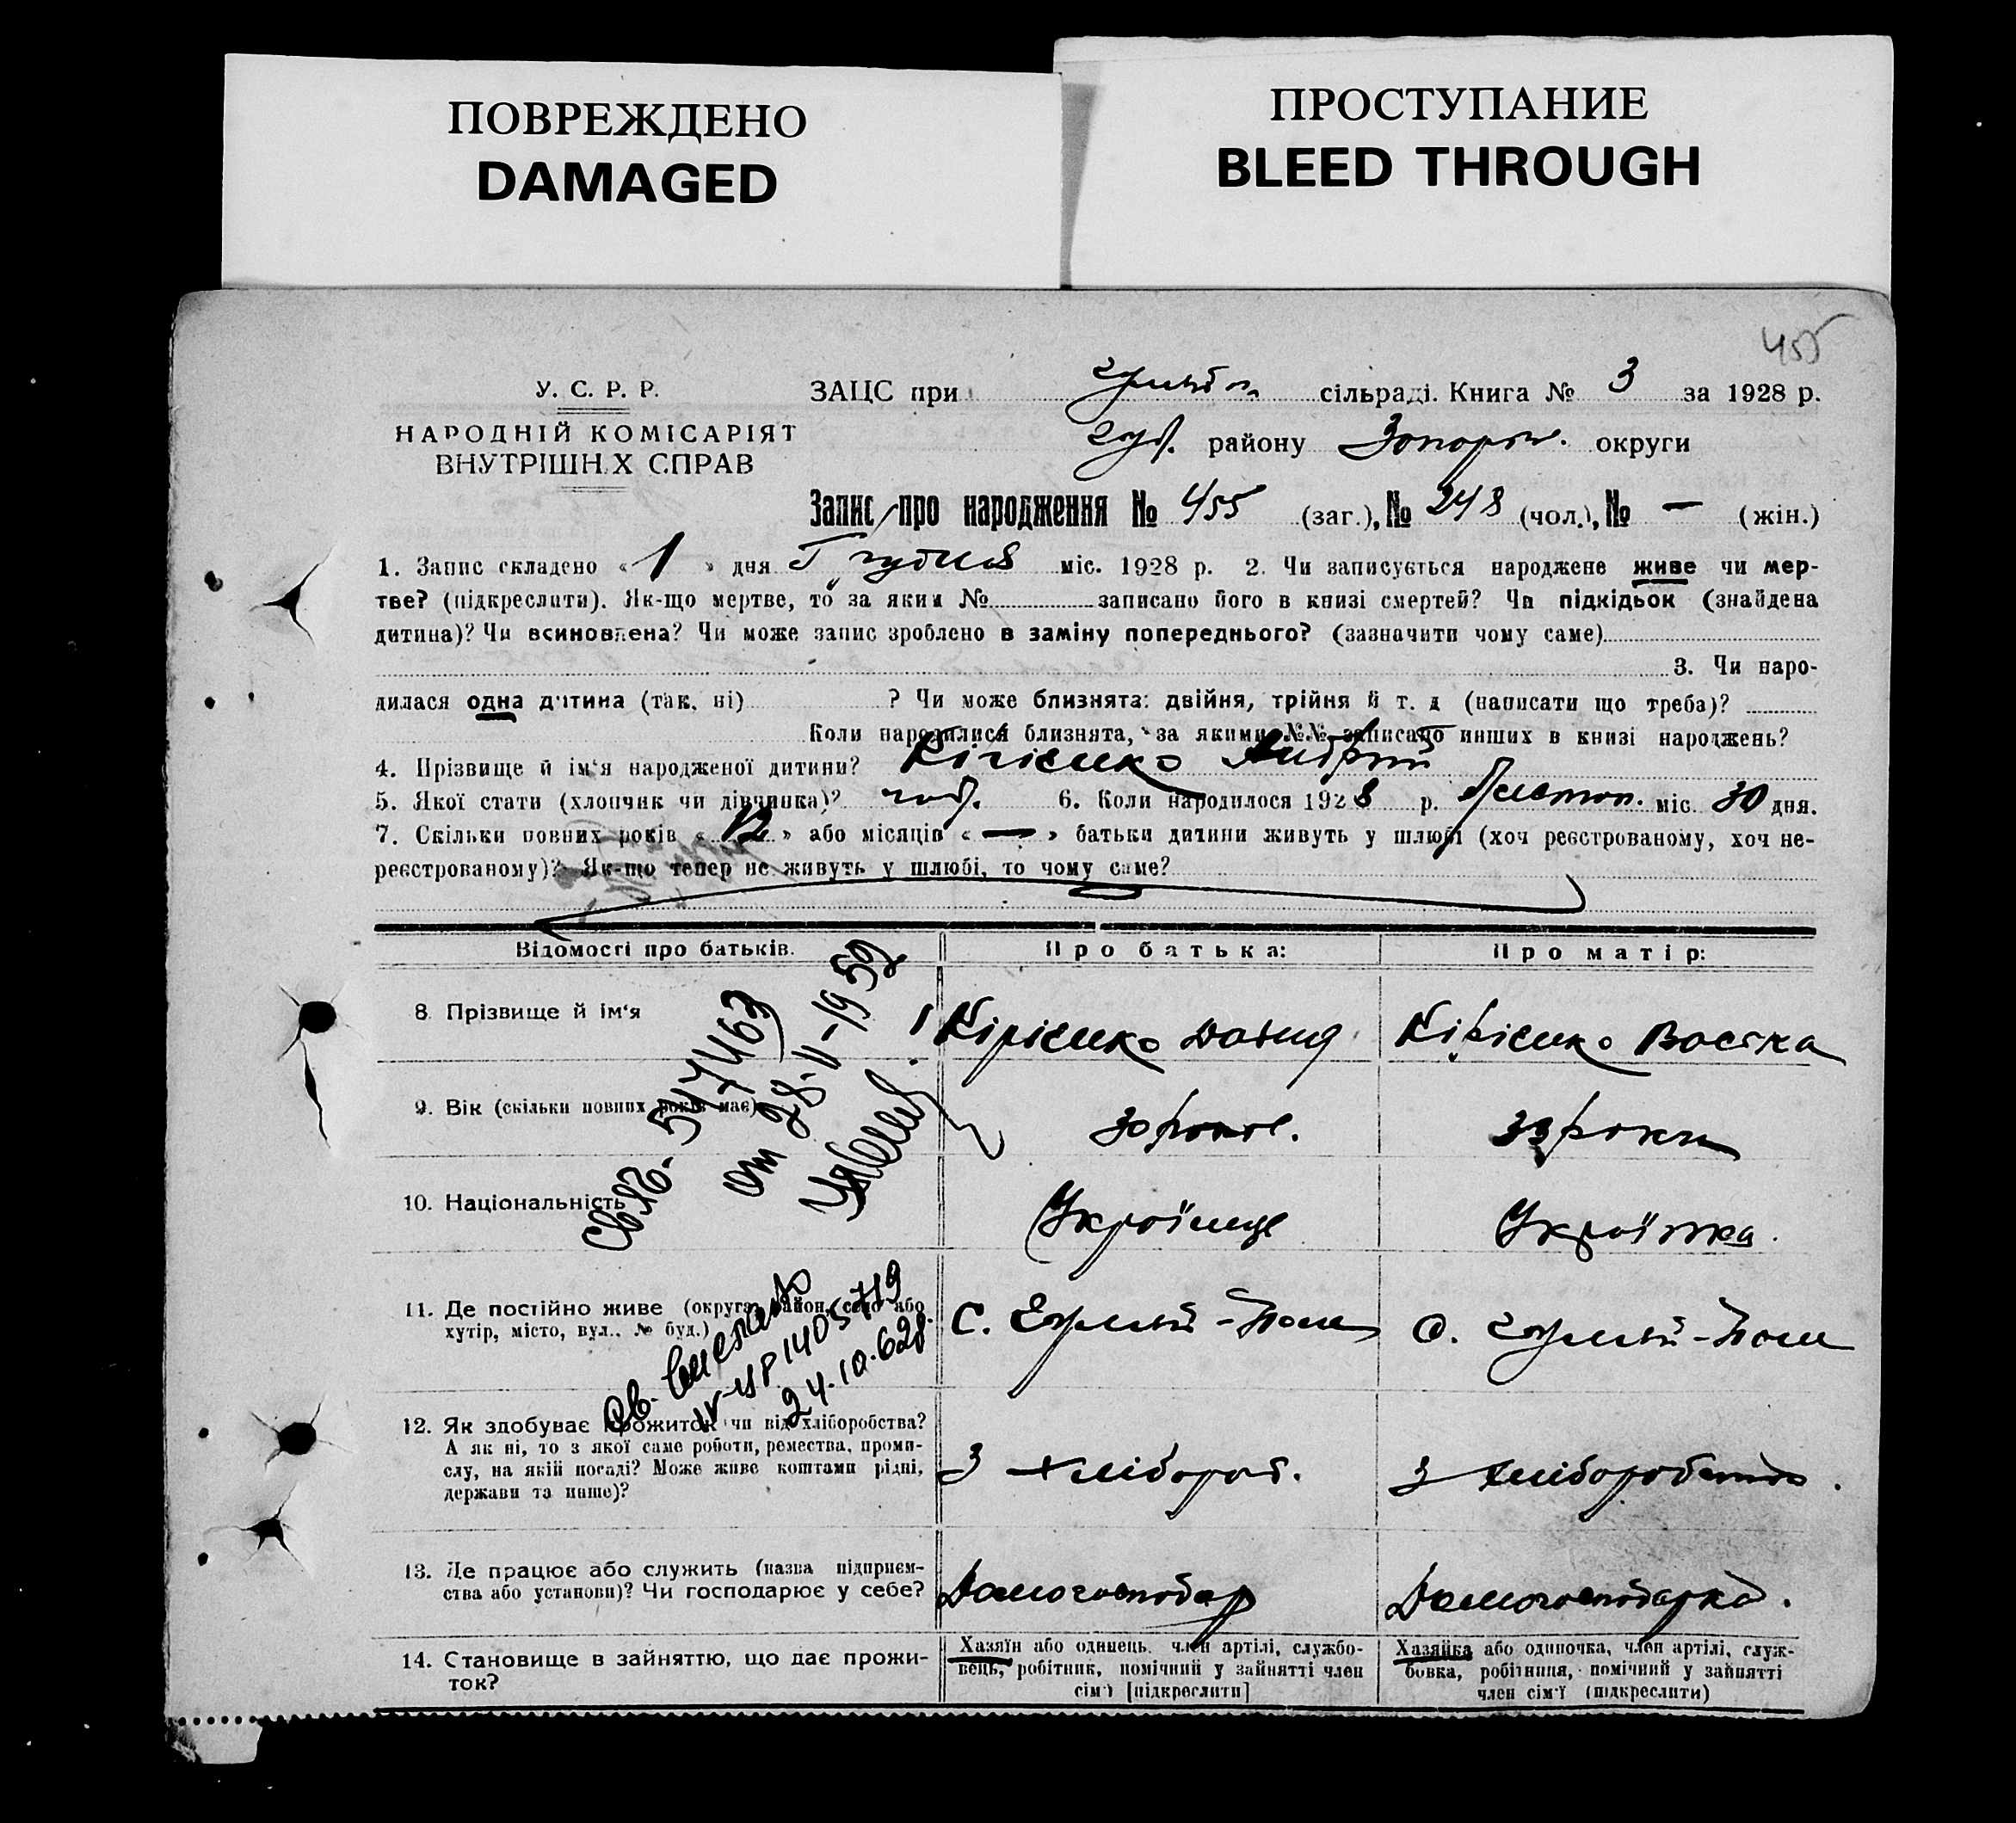 ПОВРЕЖДЕНО
DAMAGED
ПРОСТУПАНИЕ
BLEED THROUGH
455
У. С. Р. Р.
НАРОДНІЙ КОМІСАРІЯТ
ВНУТРІШНІХ СПРАВ
ЗАЦС при сільраді. Книга № 3 за 1928 р.
Гул. району Запоріж. округи
Запис про народження № 455 (заг.), № 248 (чол.), № — (жін.)
1. Запис складено « 1 » дня Грудня міс. 1928 р. 2. Чи записується народжене живе чи мер-
тве? (підкреслити). Як-що мертве, то за яким № записано його в книзі смертей? Чи підкідьок (знайдена
дитина)? Чи всиновлена? Чи може запис зроблено в заміну попереднього? (зазначити чому саме)
3. Чи наро-
дилася одна дитина (так, ні) ? Чи може близнята: двійня, трійня й т. д (написати що треба)?
Коли народилися близнята, за якими №№ записано инших в книзі народжень?
4. Прізвище й ім'я народженої дитини? Кірієнко Андрій
5. Якої статі (хлопчик чи дівчинка)? 6. Коли народилося 1928 р. Листоп. міс. 30 дня.
7. Скільки повних років « 12 » або місяців « — » батьки дитини живуть у шлюбі (хоч реєстрованому, хоч не-
реєстрованому)? Як-що тепер не живуть у шлюбі, то чому саме?
Відомості про батьків. Про батька: Про матір:
8. Прізвище й ім'я Кірієнко Давид Кірієнко Васілка
9. Вік (скільки повних років має) 30 років. 33 роки
10. Національність Українець Українка.
11. Де постійно живе (округа, район, село або
хутір, місто, вул., № буд.) С. Гуляй-Поле С. Гуляй-Поле
12. Як здобуває прожиток чи від хліборобства?
А як ні, то з якої саме роботи, ремества, проми-
слу, на якій посаді? Може живе коштами рідні,
держави та инше)? З хлібороб. З хліборобства.
13. Де працює або служить (назва підприєм-
ства або установи)? Чи господарює у себе? Домогосподар Домогосподарка.
14. Становище в зайняттю, що дає прожи-
ток?
Хазяїн або одинець, член артілі, службо-
вець, робітник, помічний у зайнятті член
сім'ї [підкреслити]
Хазяйка або одиночка, член артілі, служ-
бовка, робітниця, помічний у зайнятті
член сім'ї (підкреслити)
547463
от 28-II-1959
1405719
24.10.62г.